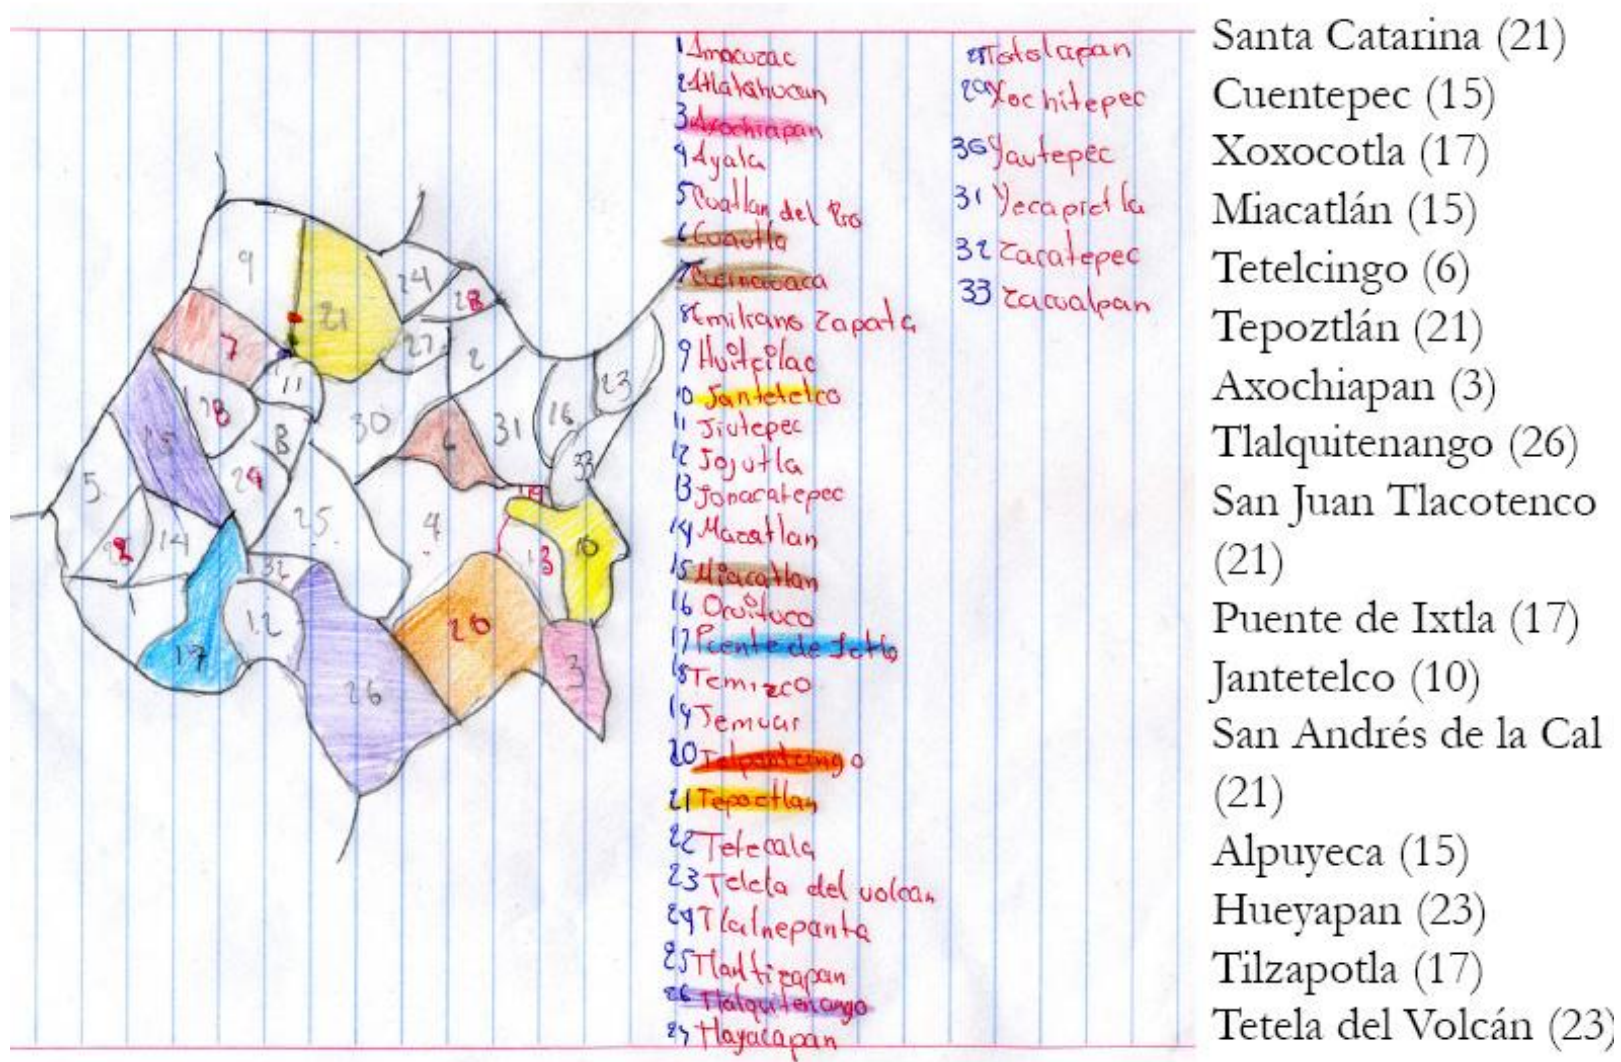 1 Amacuzac
2 Atlatahucan
3 Axochiapan
4 Ayala
5 Coatlan del Rio
6 Cuautla
7 Cuernavaca
8 Emiliano Zapata
9 Huitzilac
10 Jantetelco
11 Jiutepec
12 Jojutla
13 Jonacatepec
14 Mazatlan
15 Miacatlan
16 Ocuituco
17 Puente de Ixtla
18 Temizco
19 Temuac
20 Telpantzingo
21 Tepoztlan
22 Tetecala
23 Tetela del volcan
24 Tlalnepanta
25 Tlaltizapan
26 Tlalquitenango
27 Tlayacapan
28 Totolapan
29 Xochitepec
30 Yautepec
31 Yecapixtla
32 Zacatepec
33 Zacualpan
9
21
24
28
7
11
27
2
23
18
30
6
31
16
15
8
33
5
29
19
25
4
10
22
14
13
32
1
12
20
17
26
3
Santa Catarina (21)
Cuentepec (15)
Xoxocotla (17)
Miacatlán (15)
Tetelcingo (6)
Tepoztlán (21)
Axochiapan (3)
Tlalquitenango (26)
San Juan Tlacotenco
(21)
Puente de Ixtla (17)
Jantetelco (10)
San Andrés de la Cal
(21)
Alpuyeca (15)
Hueyapan (23)
Tilzapotla (17)
Tetela del Volcán (23)